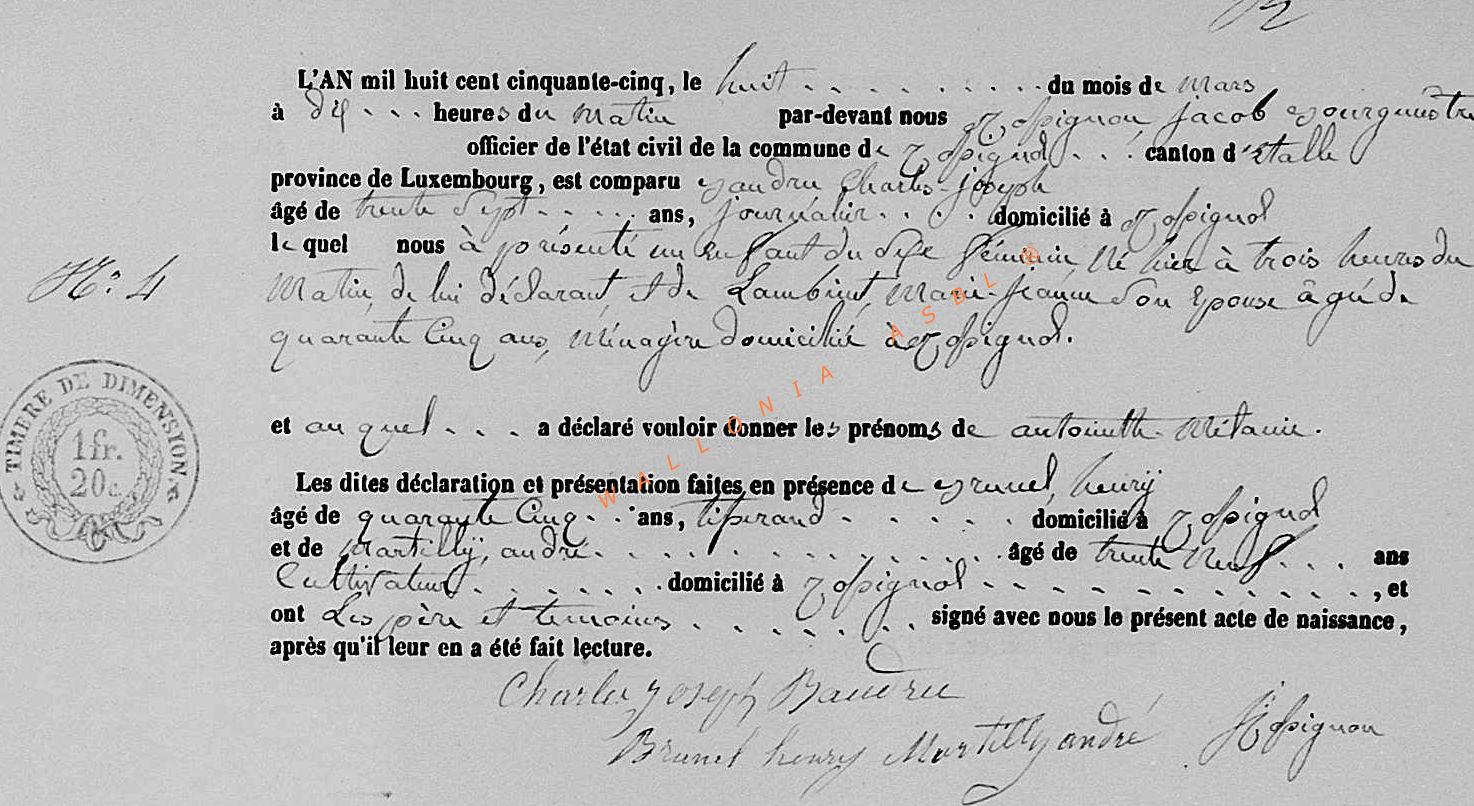 L'AN mil huit cent cinquante-cinq, le huit . . . . . . . . . . du mois de mars
à dix . . . heures du matin par-devant nous Rossignon, jacob Bourgmestre
officier de l'état civil de la commune de Rossignol . . . canton d'Etalle
province de Luxembourg, est comparu Baudru Charles-joseph
âgé de trente Sept . . . . . ans, journalier . . . . domicilié à Rossignol
le quel nous à présenté un enfant du sexe féminin, Né hier à trois heures du
Matin, de lui déclarant et de Lambinet, Marie-jeanne son Epouse âgé de
N.º 4
quarante Cinq ans, Ménagère domicilié à Rossignol.
TIMBRE DE DIMENSION.
1 fr.
20 c
et au quel . . . a déclaré vouloir donner les prénoms de antoinette-Mélanie.
Les dites déclaration et présentation faites en présence de Brunel, henrÿ
âgé de quarante Cinq . . . ans, tisserand . . . . . . domicilié à Rossignol
et de Martillÿ, andré . . . . . . . . . . . . . . . âgé de trente Neuf . . . . ans
Cultivateur . . . . . . . domicilié à Rossignol - - - - - - - - - - - - , et
ont Les père et temoins . . . . . . . . signé avec nous le présent acte de naissance,
après qu'il leur en a été fait lecture.
Charles Joseph Baudru
Brunel henry Martilly andré J Rossignon
WALLONIA ASBL ®